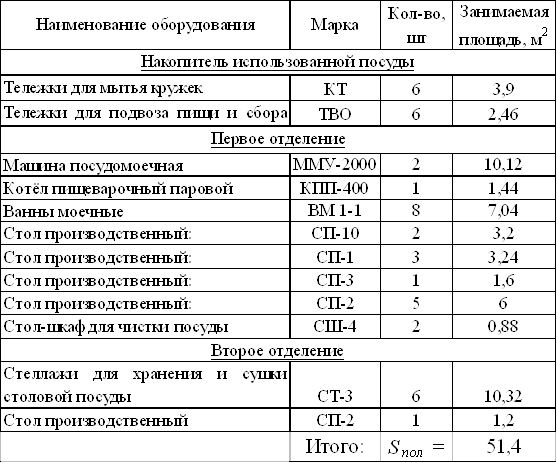 Наименование оборудования Марка Кол-во, шт Занимаемая площадь, м²
Накопитель использованной посуды
Тележки для мытья кружек КТ 6 3,9
Тележки для подвоза пищи и сбора ТВО 6 2,46
Первое отделение
Машина посудомоечная ММУ-2000 2 10,12
Котёл пищеварочный паровой КПП-400 1 1,44
Ванны моечные ВМ 1-1 8 7,04
Стол производственный: СП-10 2 3,2
Стол производственный: СП-1 3 3,24
Стол производственный: СП-3 1 1,6
Стол производственный: СП-2 5 6
Стол-шкаф для чистки посуды СШ-4 2 0,88
Второе отделение
Стеллажи для хранения и сушки
столовой посуды СТ-3 6 10,32
Стол производственный СП-2 1 1,2
Итого: Sпол = 51,4